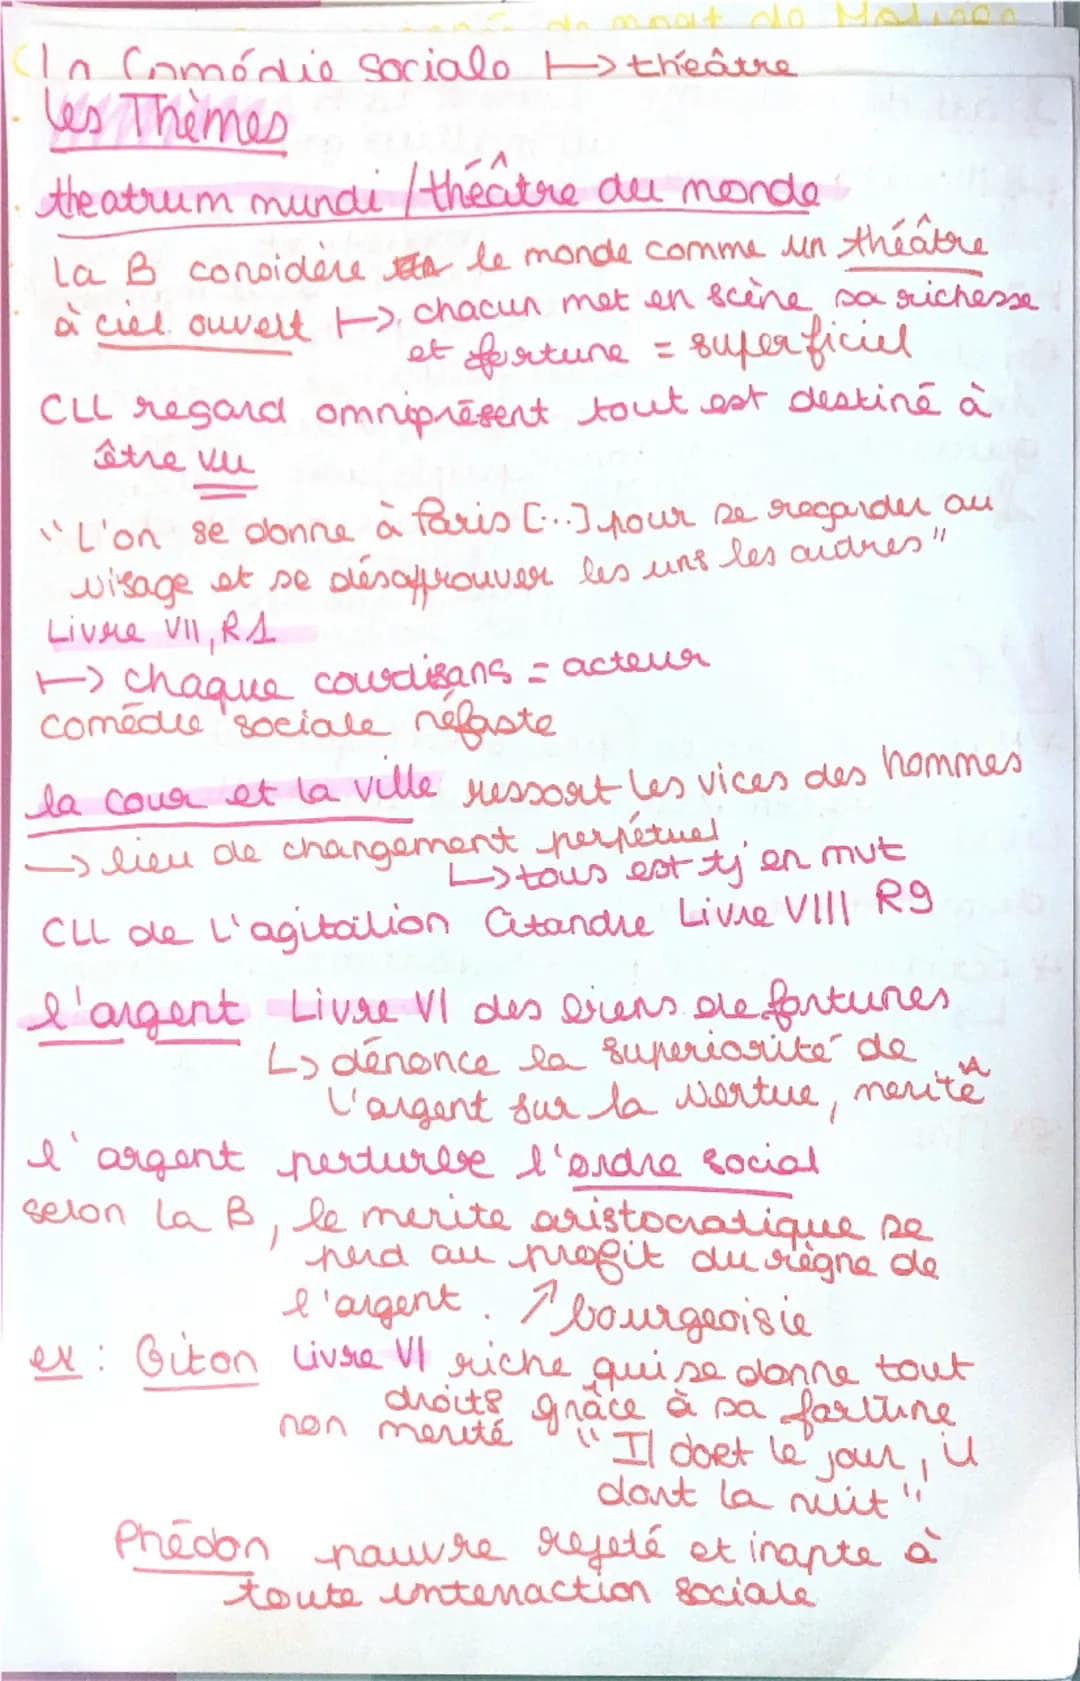 de mort de Molière
La Comédie sociale |-> théâtre
Les Thèmes
theatrum mundi / théâtre du monde
La B considère le monde comme un théâtre
à ciel ouvert |-> chacun met en scène sa richesse
et fortune = superficiel
CLL regard omniprésent tout est destiné à
être vu
"L'on se donne à Paris [...] pour se regarder au
visage et se désapprouver les uns les autres"
Livre VII, R1
|-> chaque courtisans = acteur
comédie sociale néfaste
la cour et la ville ressort les vices des hommes
-> lieu de changement perpétuel
↳ tous est tj en mvt
CLL de l'agitation Citandre Livre VIII R9
l'argent Livre VI des biens de fortunes
↳ dénonce la superiorité de
l'argent sur la vertue, merite
l'argent perturbe l'ordre social
selon La B, le merite aristocratique se
perd au profit du règne de
l'argent. ↗ bourgeoisie
ex : Giton Livre VI riche qui se donne tout
droits grâce à sa fortune
non merité "Il dort le jour, il
dort la nuit"
Phédon pauvre rejeté et inapte à
toute interraction sociale